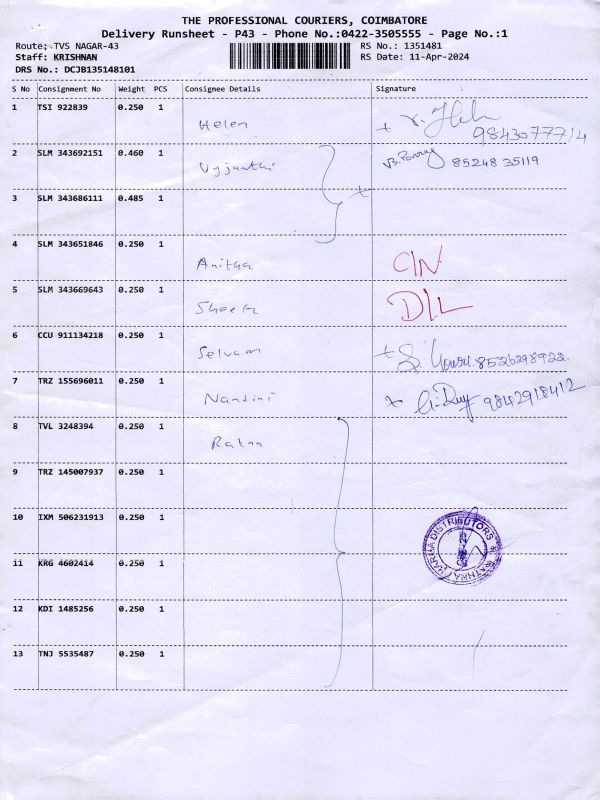 THE PROFESSIONAL COURIERS, COIMBATORE
Delivery Runsheet - P43 - Phone No.:0422-3505555 - Page No.:1
Route: TVS NAGAR-43 RS No.: 1351481
Staff: KRISHNAN RS Date: 11-Apr-2024
DRS No.: DCJB135148101
S No Consignment No Weight PCS Consignee Details Signature
1 TSI 922839 0.250 1
Helen 9843077714
2 SLM 343692151 0.460 1
Vyjanthi 85248 35119
3 SLM 343686111 0.485 1
4 SLM 343651846 0.250 1
Anitha CIN
5 SLM 343669643 0.250 1
Sheela D/L
6 CCU 911134218 0.250 1
Selvam 8526298922
7 TRZ 155696011 0.250 1
Nandini 9842918412
8 TVL 3248394 0.250 1
Ratna
9 TRZ 145007937 0.250 1
10 IXM 506231913 0.250 1
DISTRIBUTORS
11 KRG 4602414 0.250 1
12 KDI 1485256 0.250 1
13 TNJ 5535487 0.250 1